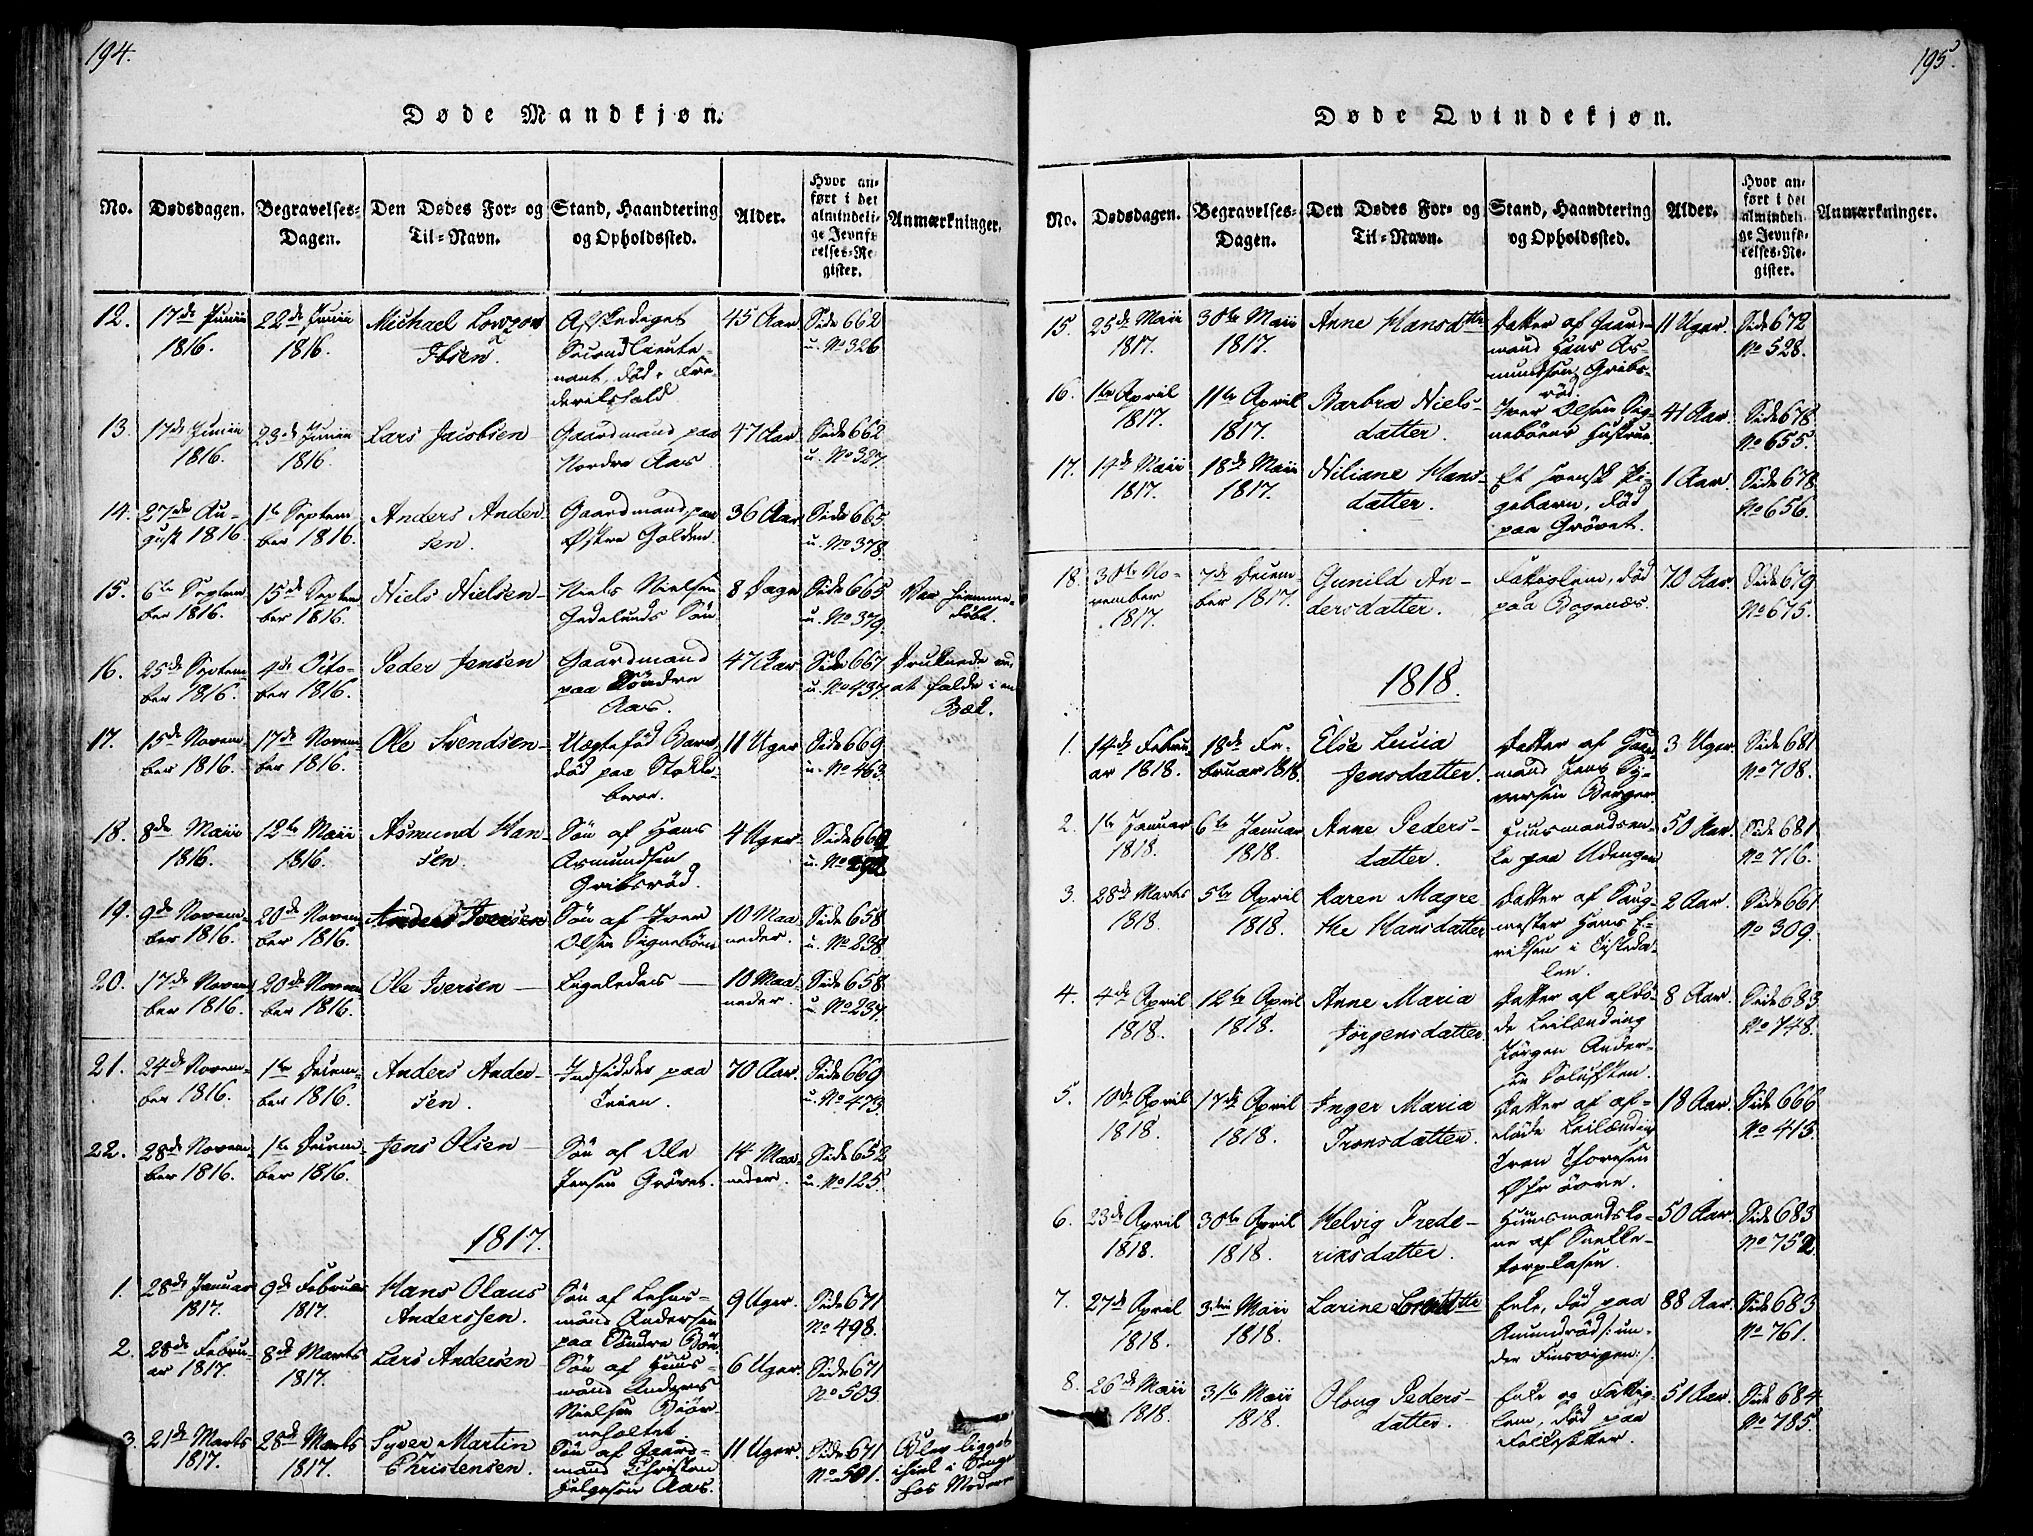 194.
Døde Mandkjøn.
No. Dødsdagen. Begravelses-Dagen. Den Dødes For- og Til-Navn. Stand, Haandtering og Opholdssted. Alder. Hvor anført i det almindelige Jevnførelses-Register. Anmærkninger.
12. 17de Junii 1816. 22de Junii 1816. Michael Lowzow Ibsen. Afskediget Secondlieutenant, død i Frederikshald 45 Aar Side 662 u. No 326
13. 17de Junii 1816. 23de Junii 1816. Lars Jacobsen Gaardmand paa Nordre Aas 47 Aar Side 662 u. No 327.
14. 27de August 1816. 1te September 1816. Anders Andersen. Gaardmand paa Østre Holden. 36 Aar Side 665 u. No 378.
15. 6te September 1816. 15de September 1816. Niels Nielsen Niels Nielsen Hedelunds Søn. 8 Dage Side 665 u. No 379. Var hjemmedøbt.
16. 25de September 1816. 4de October 1816. Peder Jensen Gaardmand paa Søndre Aas. 47 Aar Side 667 u. No 437. Druknede ved at falde i en Bæk.
17. 15de November 1816. 17de November 1816. Ole Svendsen Uægtefød Barn, død paa Stokkebroe. 11 Uger Side 669 u. No 463.
18. 8de Maii 1816. 12te Maii 1816. Asmund Hansen. Søn af Hans Asmundsen Gribsrød. 4 Uger. Side 669 u. No
19. 9de November 1816. 20de November 1816. Anders Iversen Søn af Iver Olsen Signebøen 10 Maaneder. Side 658 u. No 238
20. 17de November 1816. 20de November 1816. Ole Iversen Ligeledes 10 Maaneder. Side 658 u. No 237.
21. 24de November 1816. 1te December 1816. Anders Andersen. Indsidder paa Veien. 70 Aar. Side 669 u. No 473.
22. 28de November 1816. 1te December 1816. Jens Olsen Søn af Ole Jensen Grøvet. 14 Maaneder. Side 652 u. No 125.
1817.
1. 28de Januar 1817. 9de Februar 1817. Hans Olaus Anderssen. Søn af Lehnsmand Andersen paa Søndre Bøn 9 Uger. Side 671 No 498.
2. 28de Februar 1817. 8de Marts 1817. Lars Andersen Søn af Huusmand Anders Nielsen Biørneholtet 6 Uger. Side 671 No 503
3. 21de Marts 1817. 28de Marts 1817. Syver Martin Christensen. Søn af Gaardmand Christen Helgesen Aas. 11 Uger. Side 671 No 501. Blev ligget ihiel i Sengen hos Moderen
195.
Døde Qvindekjøn.
No. Dødsdagen. Begravelses-Dagen. Den Dødes For- og Til-Navn. Stand, Haandtering og Opholdssted. Alder. Hvor anført i det almindelige Jevnførelses-Register. Anmærkninger.
15. 25de Maii 1817. 30te Maii 1817. Anne Hansdtter Datter af Gaardmand Hans Asmundsen Gribsrød. 11 Uger. Side 672 No 528.
16. 1te April 1817. 11te April 1817. Barbra Nielsdatter. Iver Olsen Signebøens Hustrue. 41 Aar. Side 678 No 655.
17. 14de Maii 1817. 18de Maii 1817. Niliane Hansdatter. Et svensk Pigebarn, død paa Grøvet. 1 Aar. Side 678 No 656.
18. 30te November 1817. 7de December 1817. Gunild Andersdatter. Fattiglem, død paa Bogenæs. 70 Aar. Side 679 No 675.
1818.
1. 14de Februar 1818. 18de Februar 1818. Else Lucia Jensdatter. Datter af Gaardmand Jens Syversen Berger. 3 Uger. Side 681 No 708.
2. 1te Januar 1818. 6te Januar 1818. Anne Pedersdatter. Huusmandsenke paa Udengen 50 Aar. Side 681 No 716.
3. 28de Marts 1818. 5te April 1818. Karen Magrethe Hansdatter Datter af Saugmester Hans Eriksen i Tistedalen. 2 Aar. Side 661 No 309.
4. 4de April 1818. 12te April 1818. Anne Maria Jørgensdatter. Datter af afdøde Leilænding Jørgen Andersen 8 Aar. Side 683 No 748.
5. 10de April 1818. 17de April 1818. Inger Maria Tronsdatter. Datter af afdøde Leilænding Tron Thoresen 18 Aar. Side 666 No 413.
6. 23de April 1818. 30te April 1818. Helvig Frederiksdatter. Huusmandskone af Snekketorpløsen. 50 Aar. Side 683 No 752
7. 27de April 1818. 3die Maii 1818. Larine Enke, død paa Amundrød /: under Finsvigen :/. 88 Aar. Side 683 No 761.
8. 26de Maii 1818. 31te Maii 1818. Oloug Pedersdatter. Enke og Fattiglem, død paa Folkesetter. 51 Aar. Side 684 No 785.